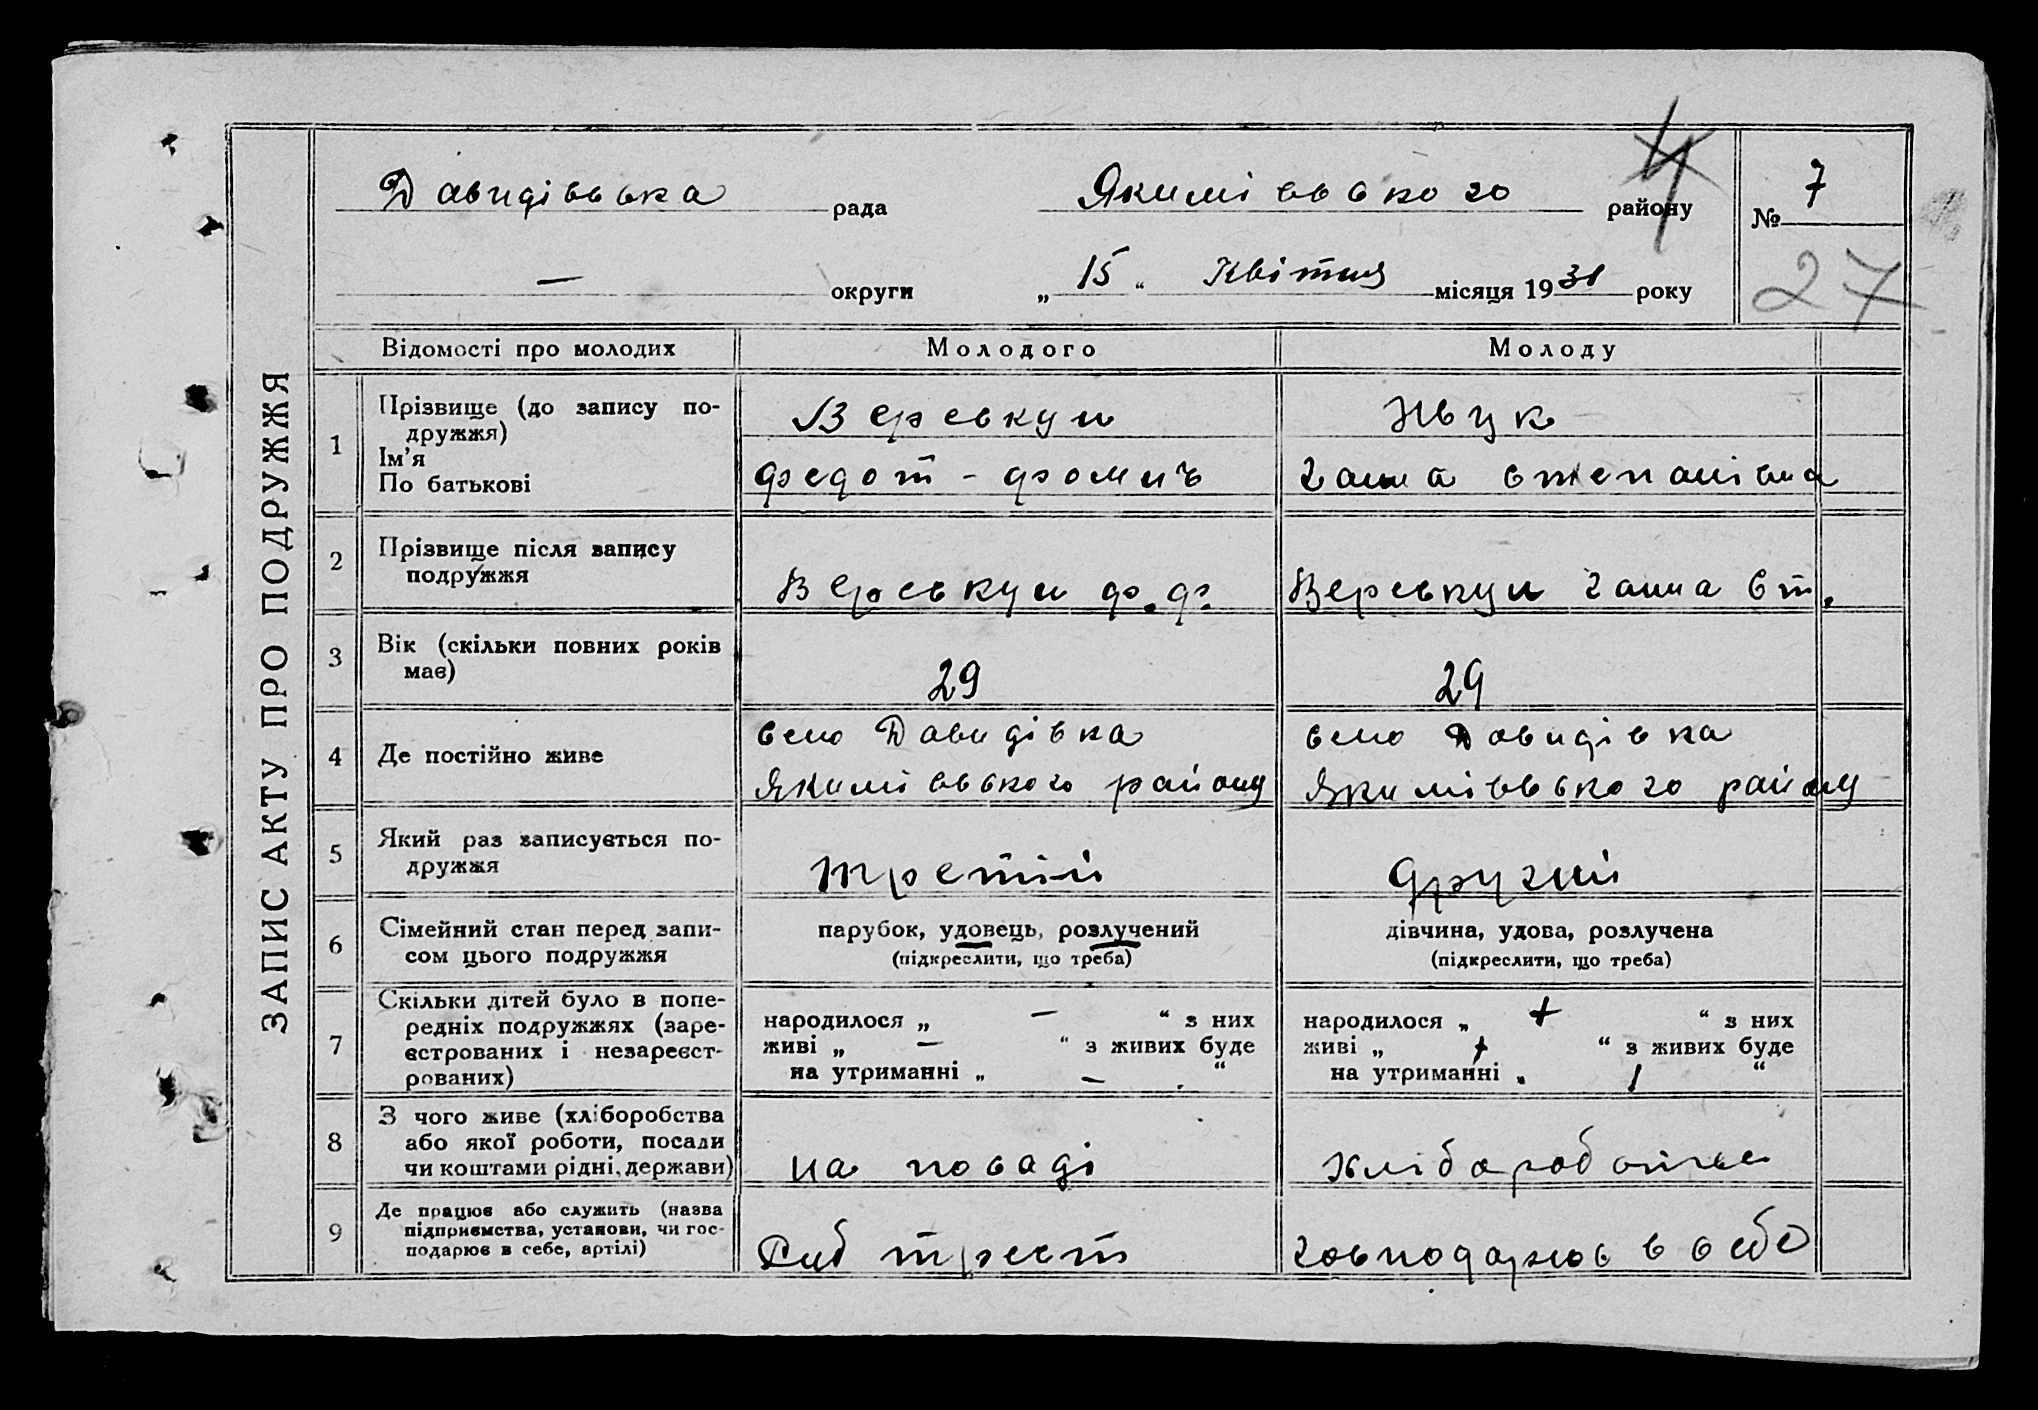 ЗАПИС АКТУ ПРО ПОДРУЖЖЯ
Давидівська рада Якимівського району № 7
— округи „ 15 “ Квітня місяця 1931 року 27
Відомості про молодих Молодого Молоду
1 Прізвище (до запису по-
дружжя)
Ім’я
По батькові
Верескун
Федот - Фомич
Ганна Степанівна
2 Прізвище після запису
подружжя
Верескун Ф. Ф.
Верескун Ганна Ст.
3 Вік (скільки повних років
має)
29
29
4 Де постійно живе
село Давидівка
Якимівського району
село Давидівка
Якимівського району
5 Який раз записується по-
дружжя
третій
другий
6 Сімейний стан перед запи-
сом цього подружжя
парубок, удовець, розлучений
(підкреслити, що треба)
дівчина, удова, розлучена
(підкреслити, що треба)
7 Скільки дітей було в попе-
редніх подружжях (заре-
єстрованих і незареєст-
рованих)
народилося „ — “ з них
живі „ — “ з живих буде
на утриманні „ — “
народилося „ + “ з них
живі „ + “ з живих буде
на утриманні „ / “
8 З чого живе (хліборобства
або якої роботи, посади
чи коштами рідні, держави)
на посаді
9 Де працює або служить (назва
підприємства, установи, чи гос-
подарює в себе, артілі)
Риб трест
господарює в себе